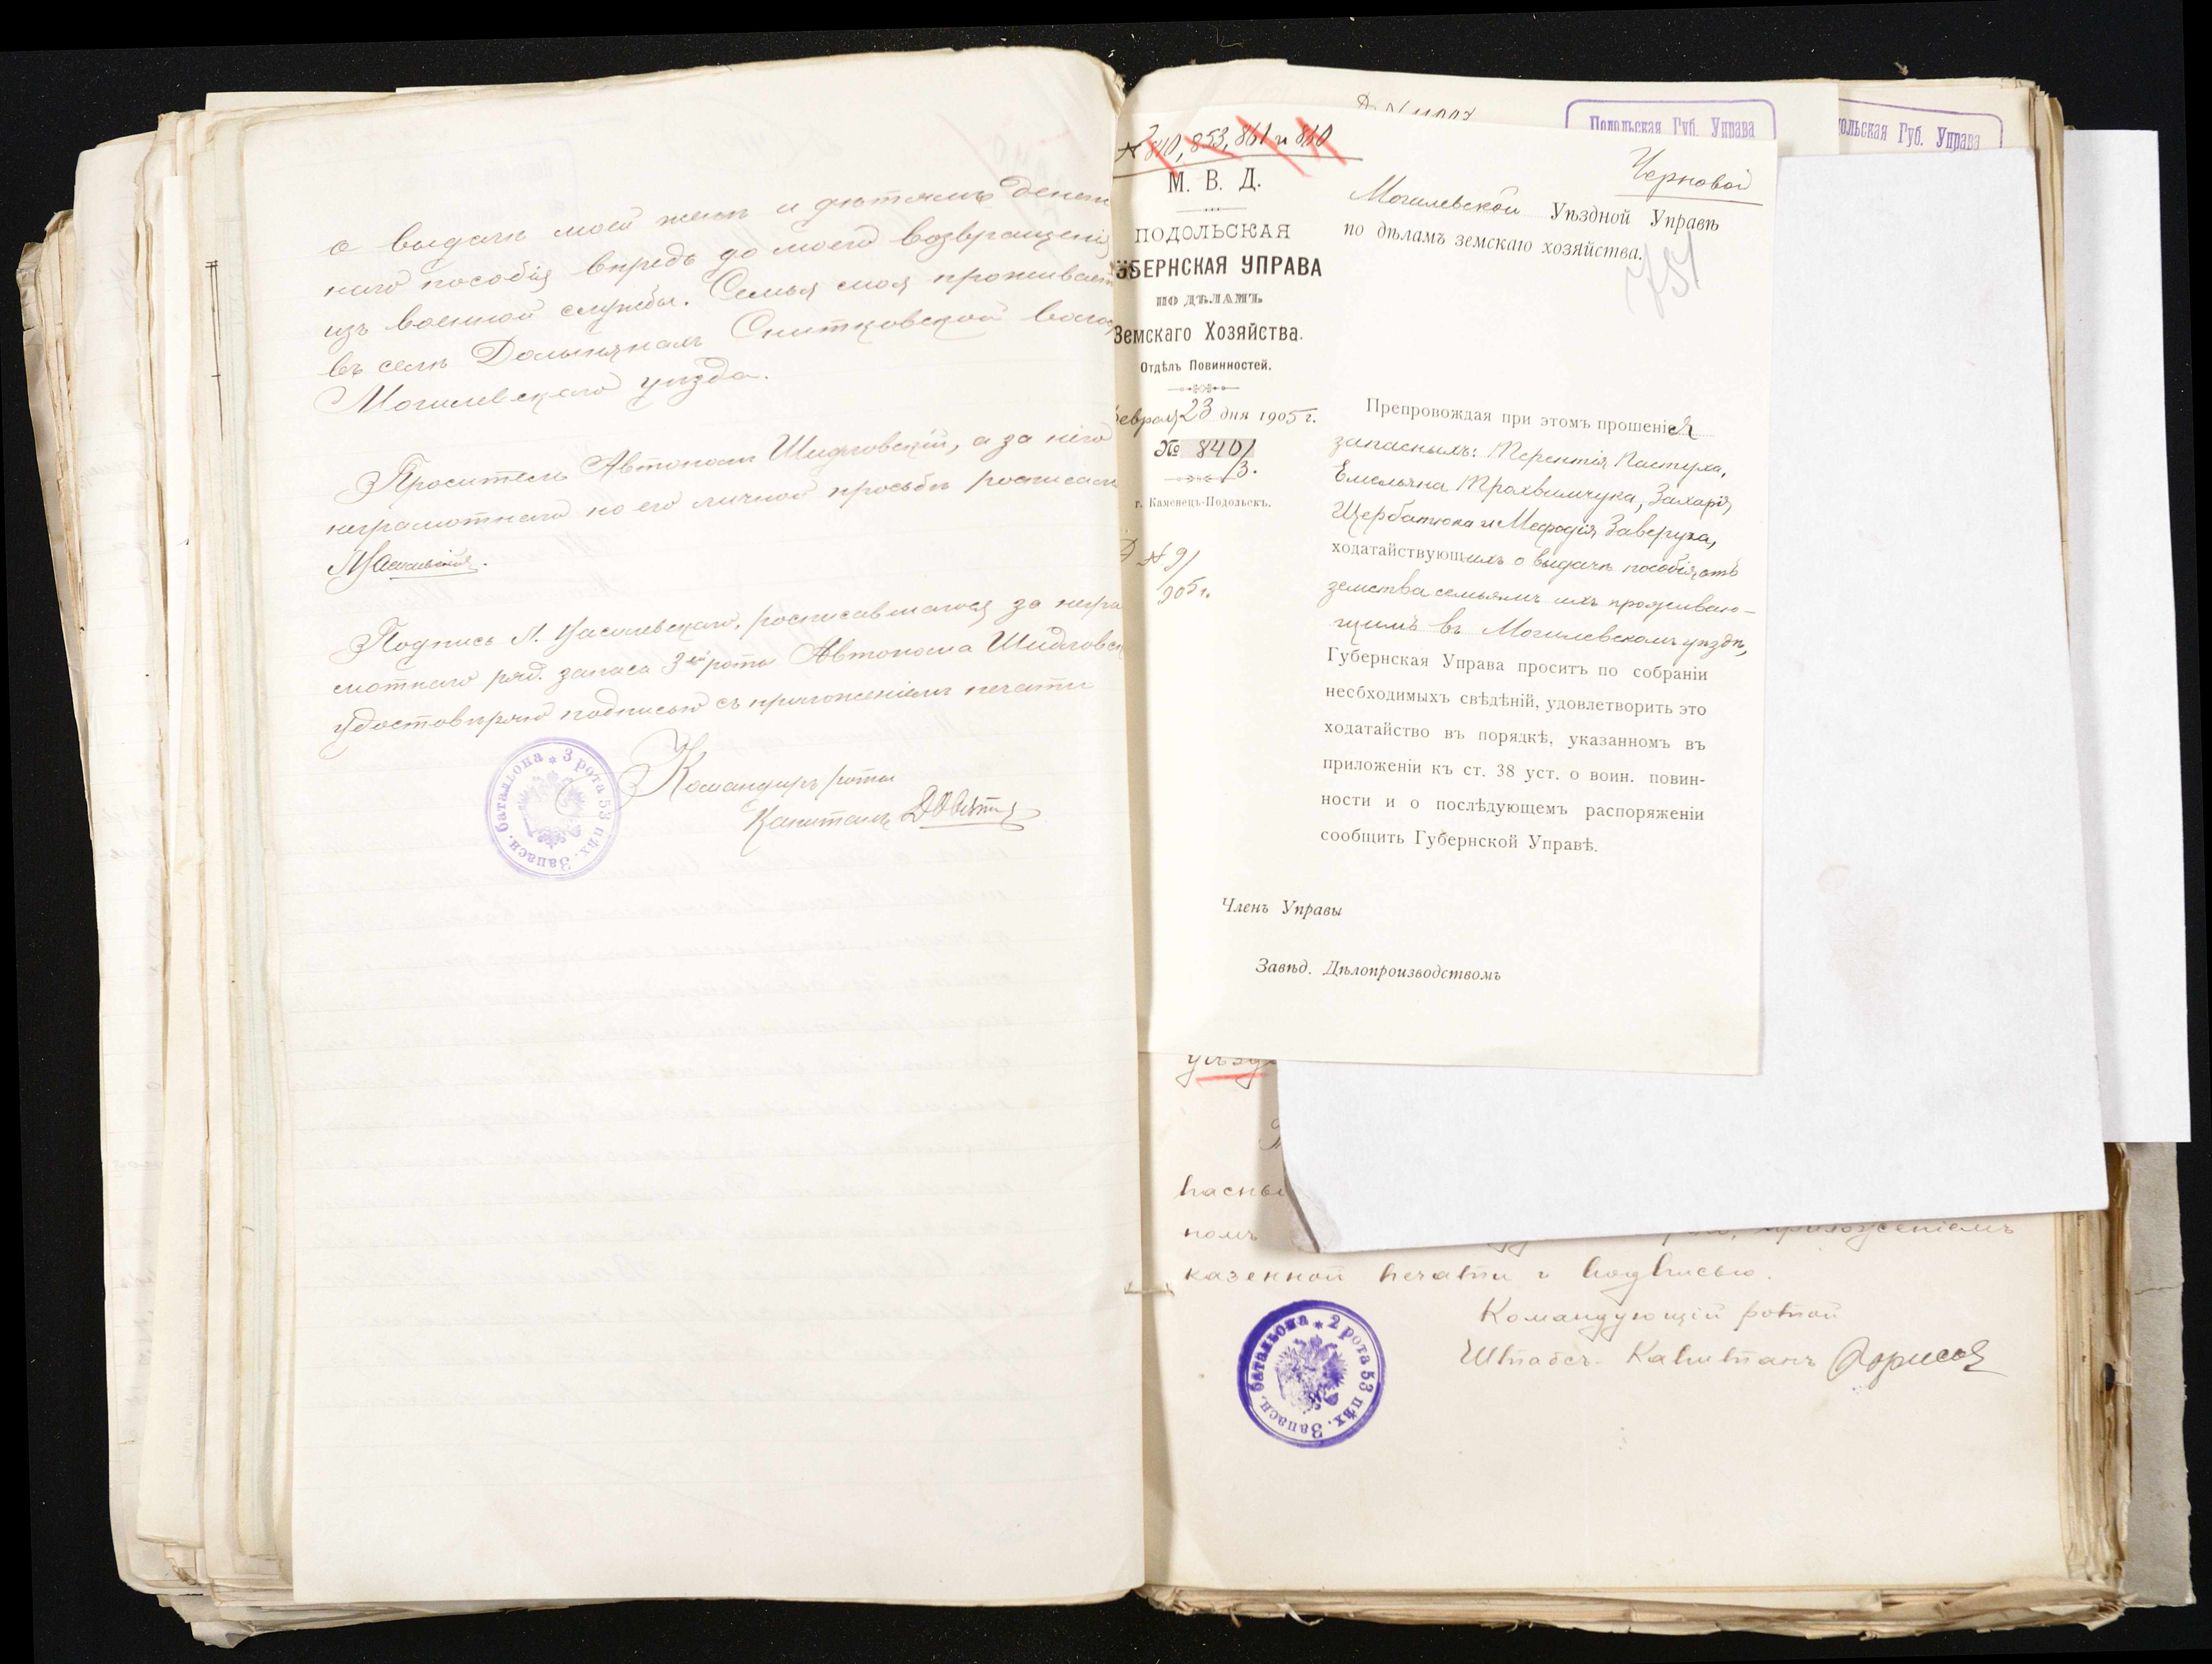 о выдачѣ моей женѣ и дѣтямъ денеж
наго пособія впредь до моего возвращенія
изъ военной службы. Семья моя проживает
въ селѣ Долынянахъ Снитковской волос
Могилевскаго уѣзда.
Проситель Автономъ Шидловскій, а за него
неграмотнаго по его личной просьбѣ росписался
Подпись Л. росписавшагося за негра
мотнаго ряд. запаса 3ей роты Автонома Шидловск
удостовѣряю подписью съ приложеніемъ печати
Командиръ роты
Капитанъ
3 рота 53 пѣх. Запасн. баталіона
Подольская Губ. Управа
ольская Губ. Управа
№ 840, 853, 861 и 860
М. В. Д.
ПОДОЛЬСКАЯ
ГУБЕРНСКАЯ УПРАВА
ПО ДѢЛАМЪ
Земскаго Хозяйства.
Отдѣлъ Повинностей.
февраля 23 дня 1905 г.
№ 840/3.
г. Каменецъ-Подольскъ.
Д №91
905 г.
Черновой
Могилевской Уѣздной Управѣ
по дѣламъ земскаго хозяйства.
751
Препровождая при этомъ прошенія
запасныхъ: Терентія Пастуха,
Емельяна Трахвимчука, Захарія
Щербатюка и Мефодія Заверуха,
ходатайствующихъ о выдачѣ пособія отъ
земства семьямъ ихъ проживаю-
щимъ въ Могилевскомъ уѣздѣ,
Губернская Управа проситъ по собраніи
несбходимыхъ свѣдѣній, удовлетворить это
ходатайство въ порядкѣ, указанномъ въ
приложеніи къ ст. 38 уст. о воин. повин-
ности и о послѣдующемъ распоряженіи
сообщить Губернской Управѣ.
Членъ Управы
Завѣд. Дѣлопроизводствомъ
уѣзд
пасны
номъ приложеніемъ
казенной печати и подписью.
Командующій ротой
Штабсъ-Капитанъ
2 рота 53 пѣх. Запасн. баталіона